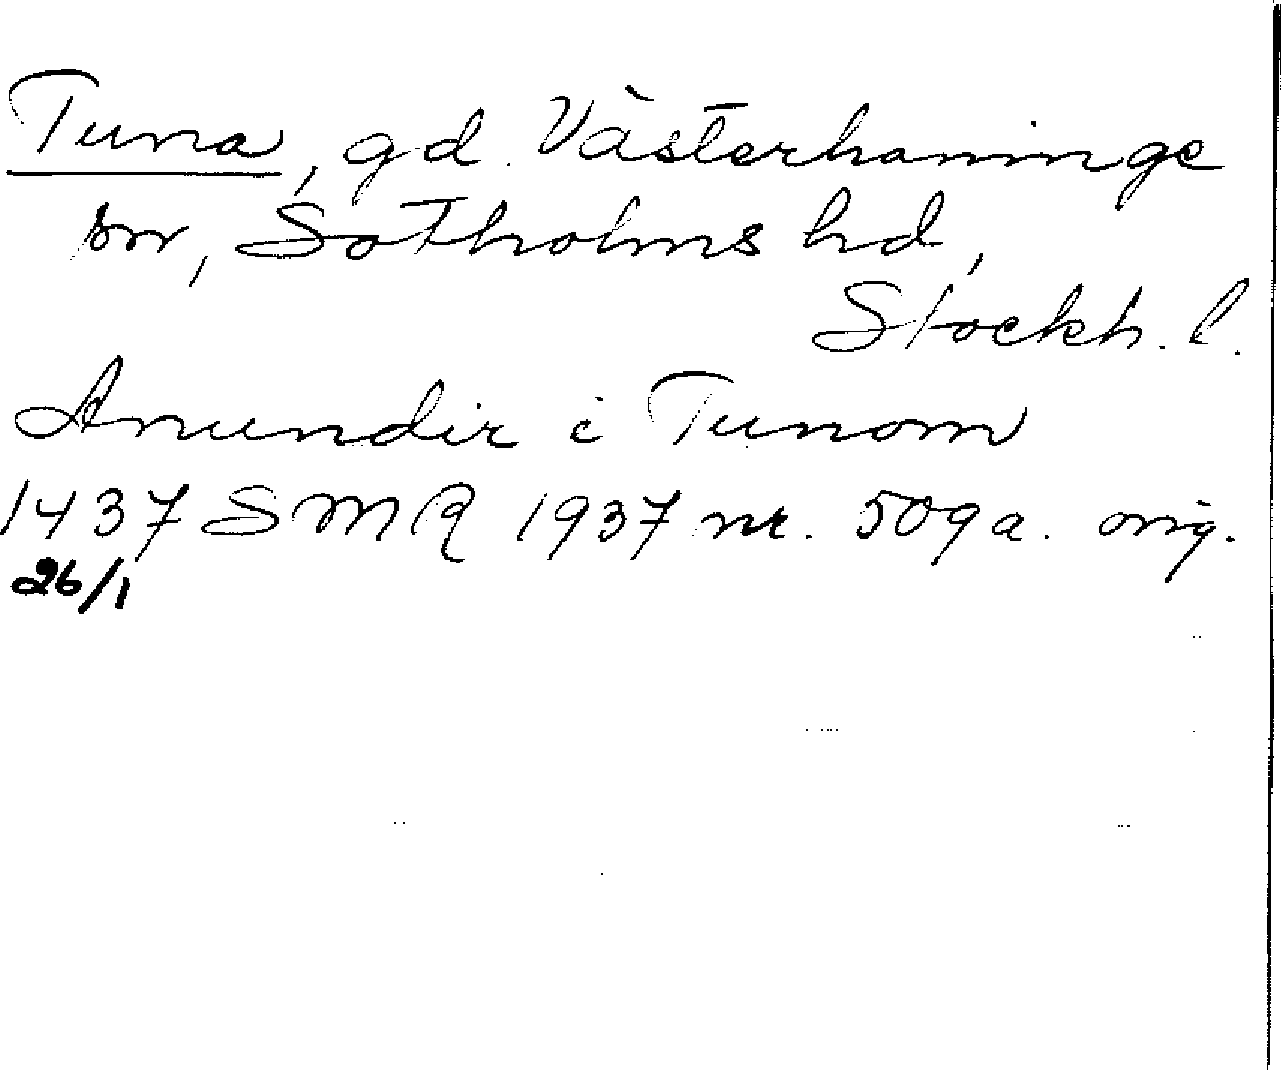 Tuna, gd. Västerhaninge
sn, Sotholms hd,
Stockh. l.
Anundir i Tunom
1437 SMR 1937 nr. 509a. orig.
26/1